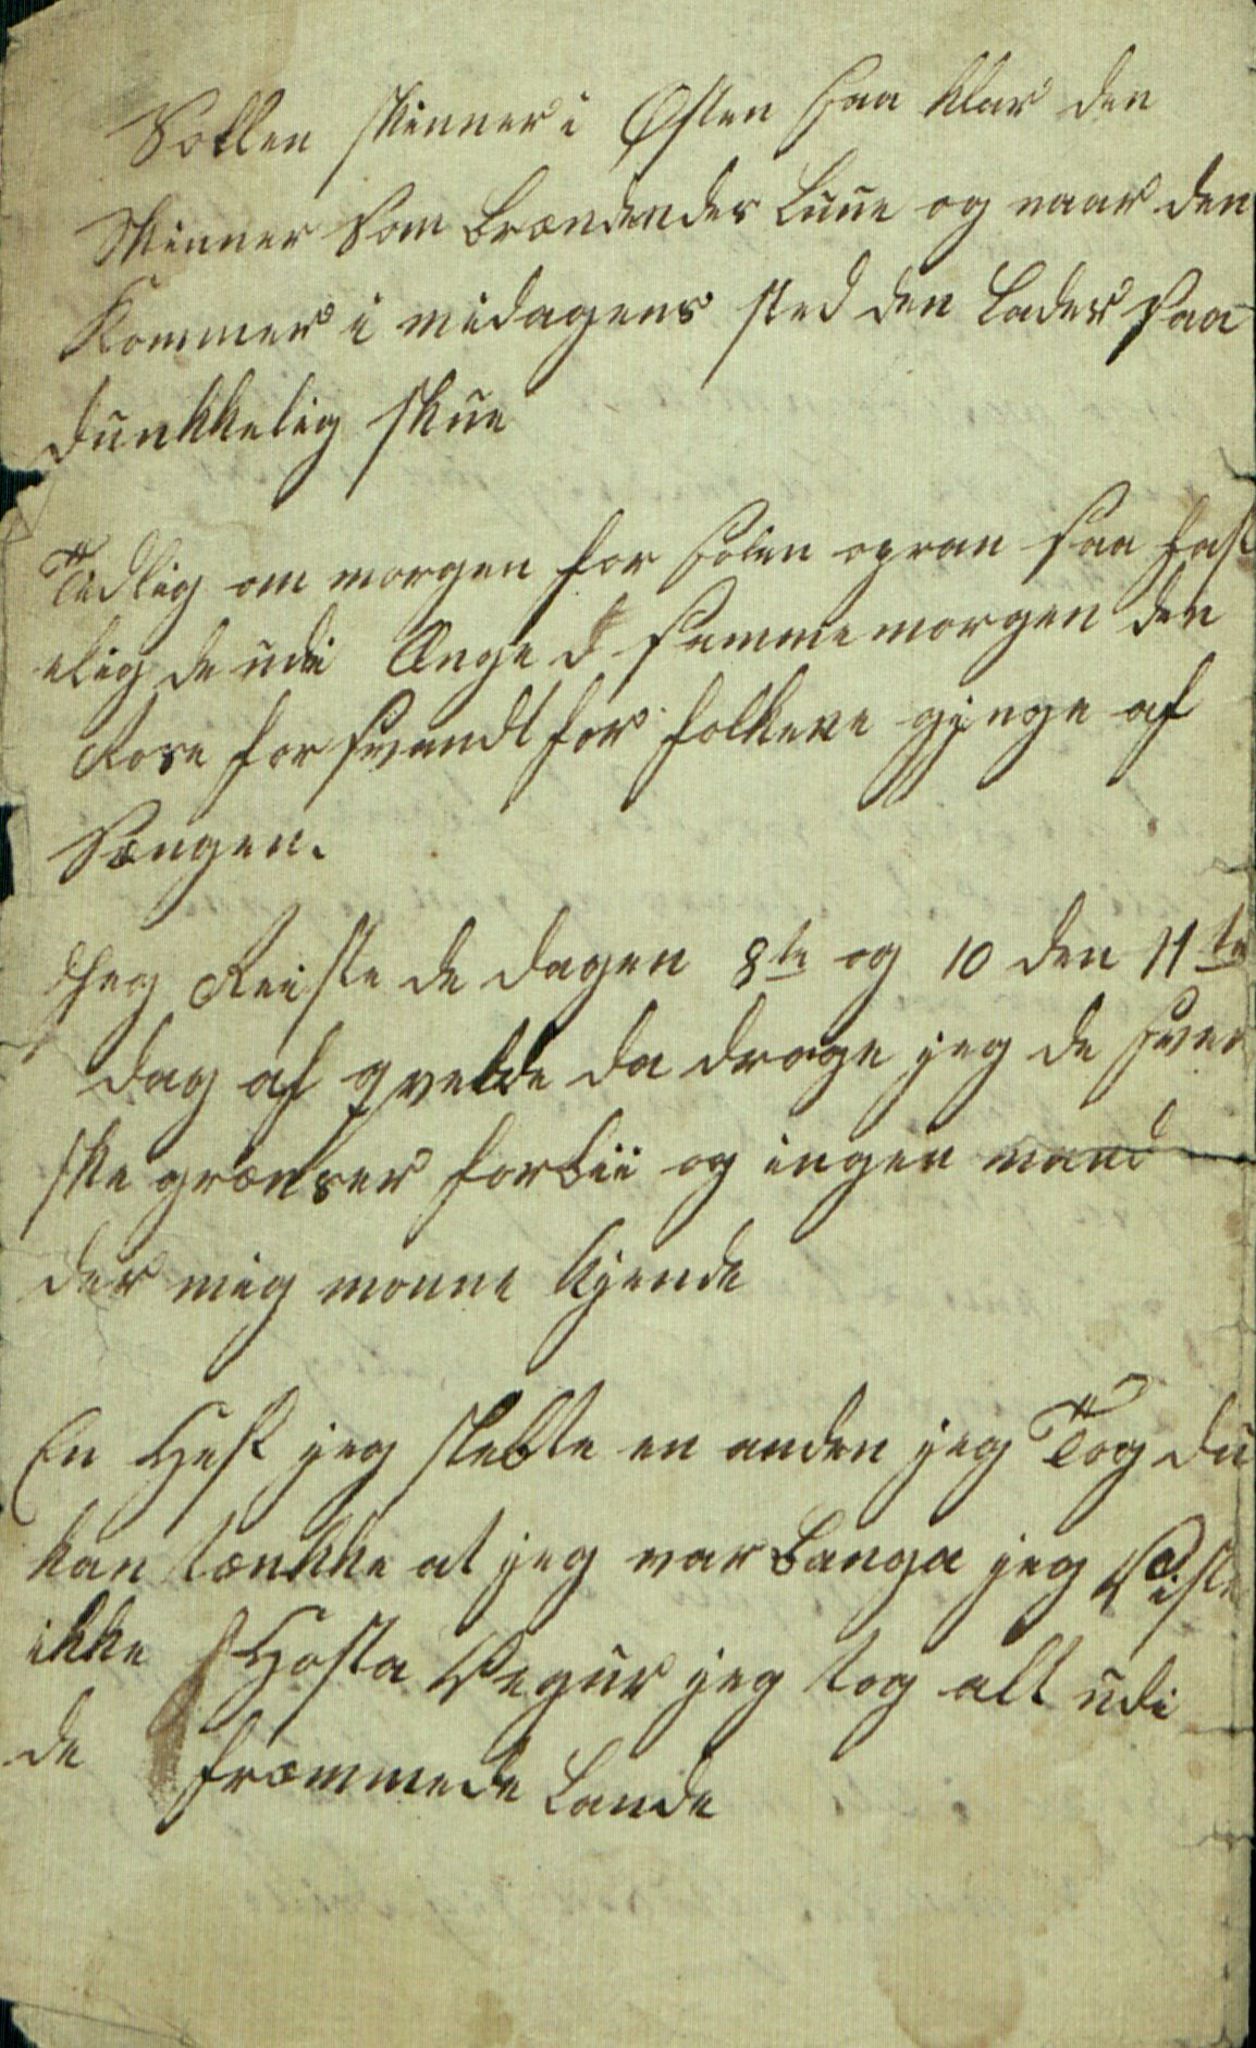 Sollen skinner i Østen saa klar den
Skinner Som Brændendes Luue og naar den
Kommer i midagens sted den Lader saa
dunkkelig skue
Tidlig om morgen for solen opran saa has
elig de udi Ænge d samme morgen den
Rose forsvandt for folkene gjenge af
Sængen.
Jeg Reiste de dagen 8te og 10 den 11te
dag af qvelde da droge jeg de sven
ske grændser forbii og ingen mand
der mig monne kjende
En Hest jeg slebte en anden jeg Tog du
kan tænkke at jeg var Banga jeg Viste
ikke Hosta Vegur jeg tog alt udi
de fræmmede Lande